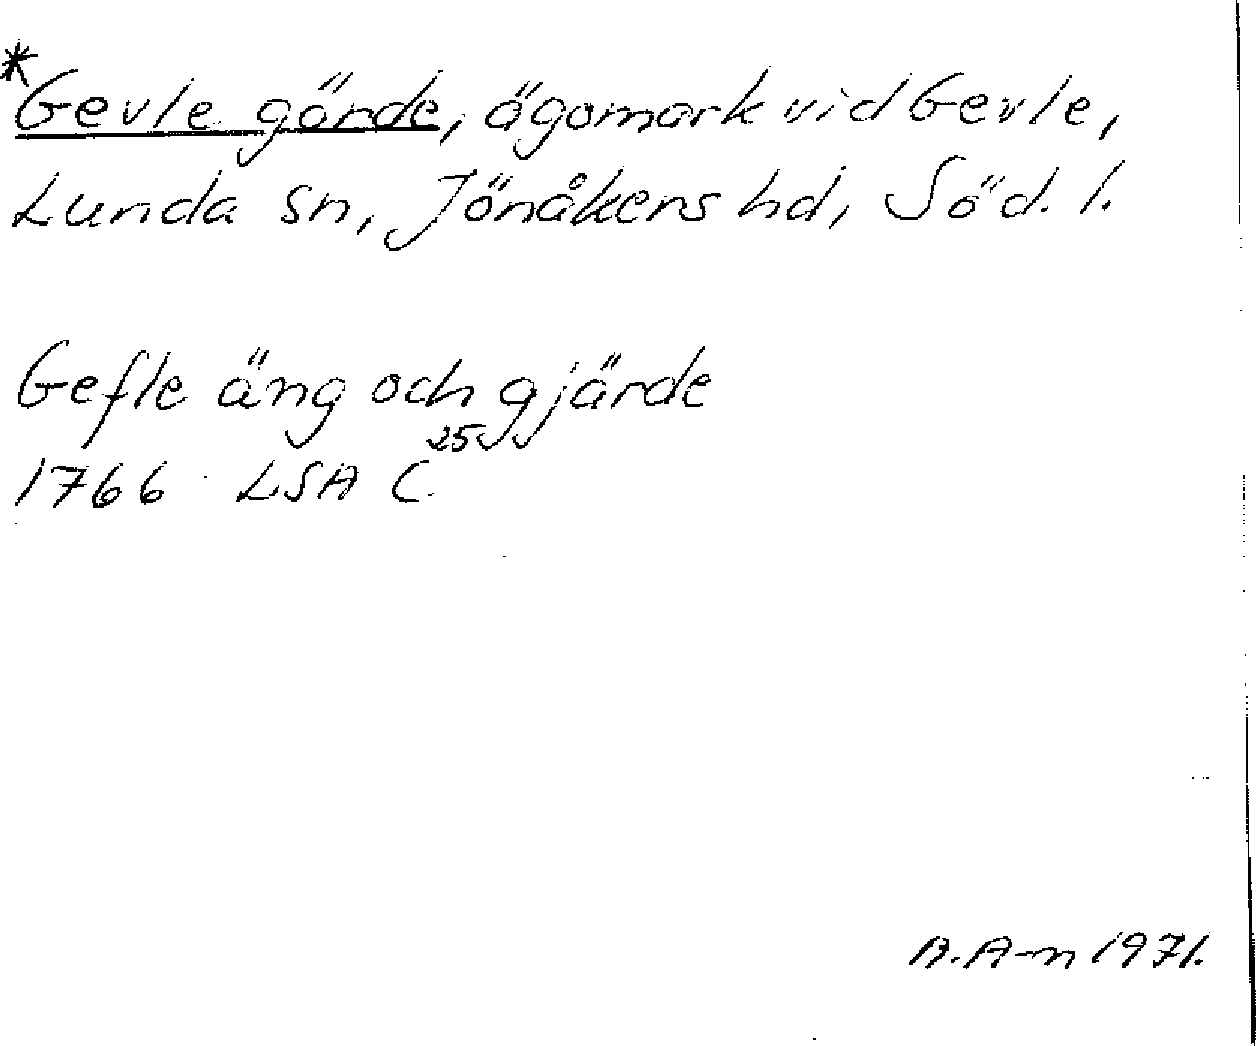 *Gevle gärde, ägomark vid Gevle,
Lunda sn, Jönåkers hd, Söd. l.
Gefle äng och gjärde
1766 LSA C 25
B. A-m 1971.